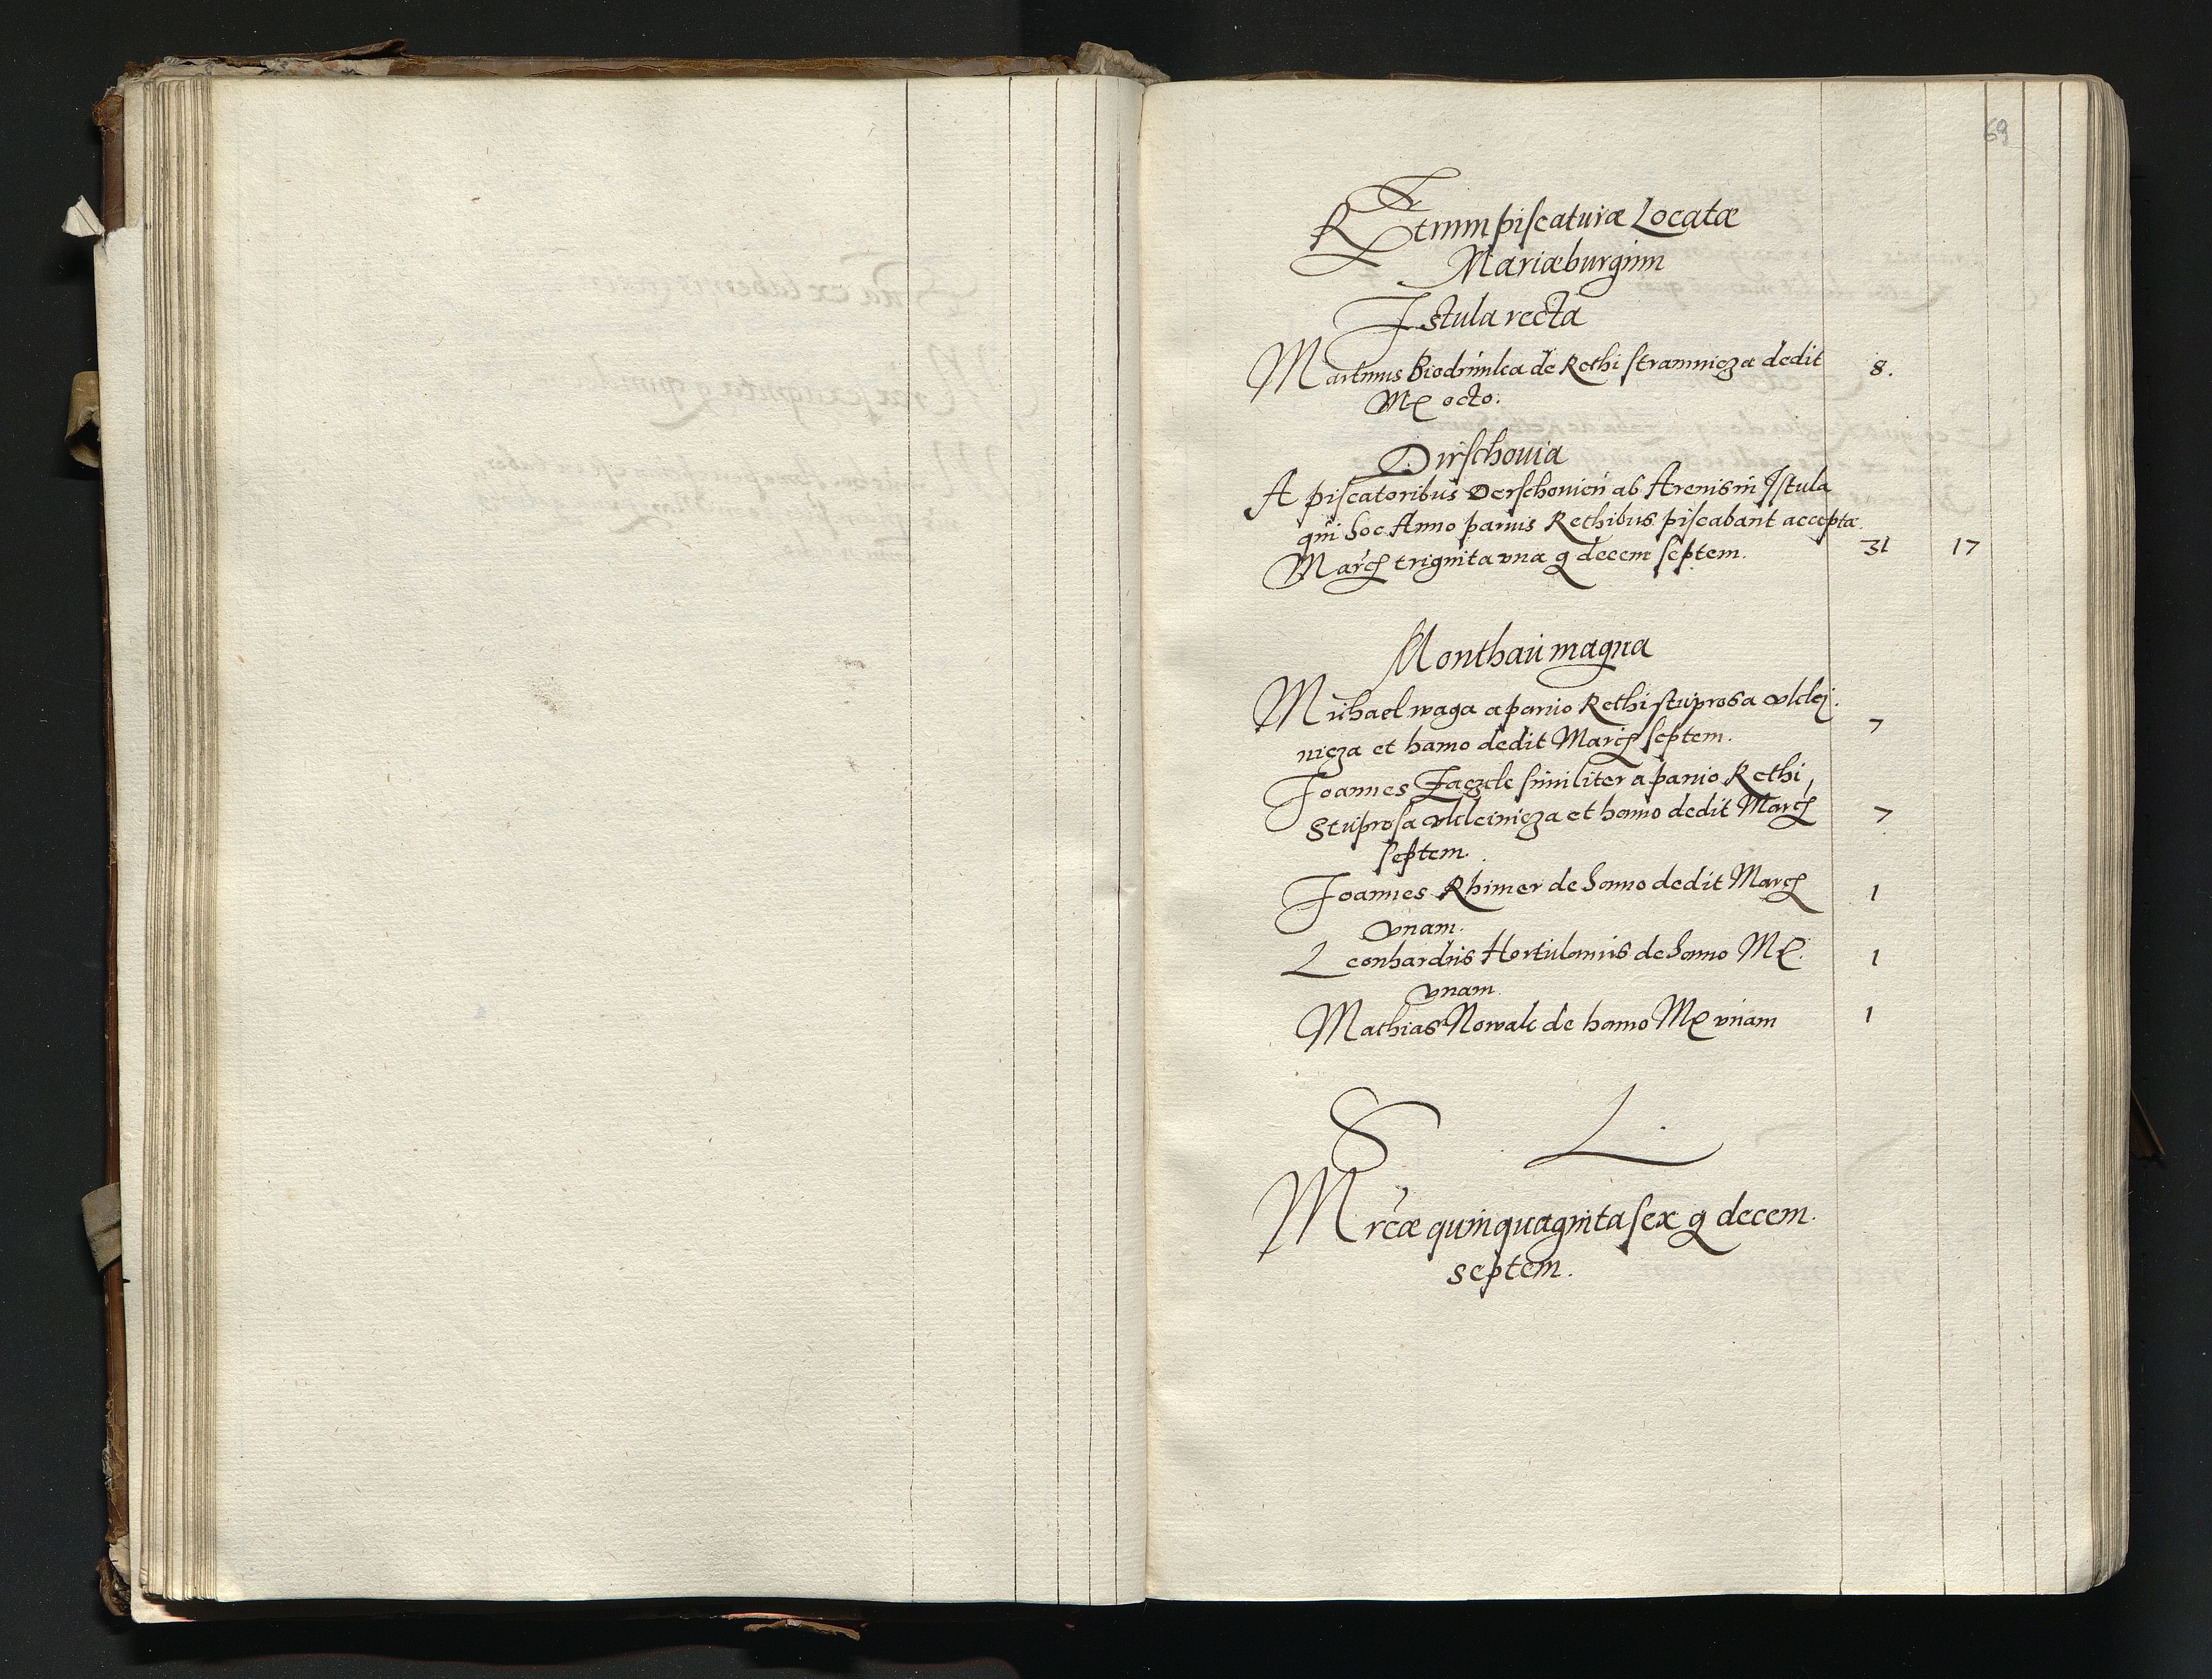 69
REtrnm piscaturæ Locatæ
Mariæburgnm
Istula recta
Martinus Biodrunka de Rethi stramnicza dedit 8.
Mr octo.
Dirschouia
A piscatoribus Derschouien ab Arenis in Istula
qui hoc Anno paruis Rethibus piscabant acceptæ
March triginta vna g decem septem. 31 17
Monthau magna
Michael waga a paruo Rethi stuprosa vklej
nicza et hamo dedit March septem. 7
Joannes similiter a paruo Rethi
Stuprosa vkleinicza et hamo dedit March 7
septem.
Joannes Rhimer de hamo dedit March 1
vnam.
Leonhardus Hortulanus de hamo Mr. 1
vnam
Mathias Nowak de hamo Mr vnam 1
S L
Mrcæ quinquaginta sex g decem
septem.